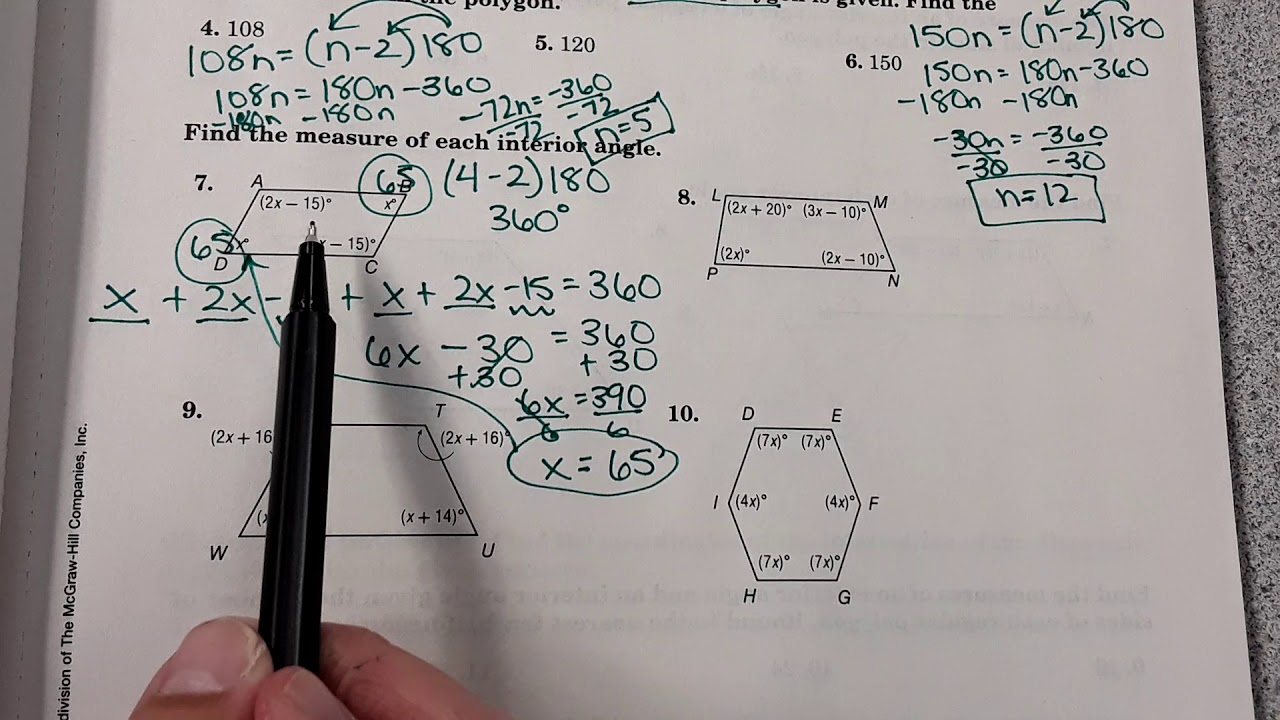 the polygon.
is given. Find the
4. 108
108n = (n-2)180
108n = 180n - 360
-180n -180n
-72n = -360
-72 -72
n = 5
5. 120
6. 150
150n = (n-2)180
150n = 180n - 360
-180n -180n
-30n = -360
-30 -30
n = 12
Find the measure of each interior angle.
7.
A
65
B
(2x – 15)°
x°
65
x°
– 15)°
D
C
(4-2)180
360°
x + 2x - + x + 2x - 15 = 360
6x - 30 = 360
+30 +30
6x = 390
6 6
x = 65
8.
L
M
(2x + 20)° (3x – 10)°
(2x)° (2x – 10)°
P
N
9.
T
(2x + 16
(2x + 16)°
(x + 14)°
W
U
10.
D E
(7x)° (7x)°
I (4x)° (4x)° F
(7x)° (7x)°
H G
division of The McGraw-Hill Companies, Inc.